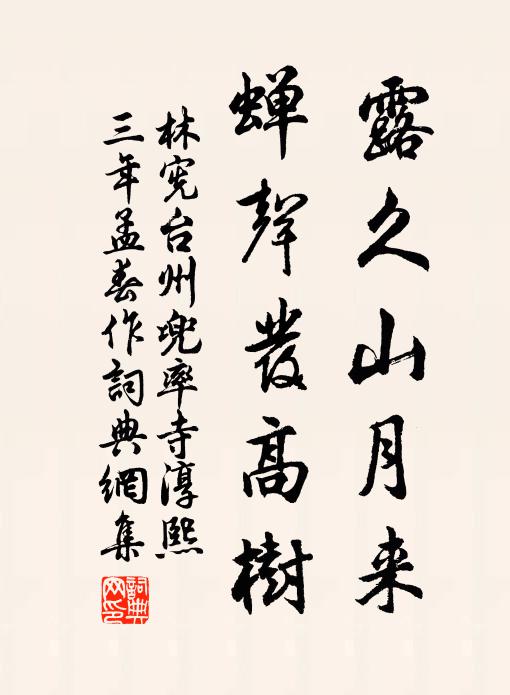 露久山月来
蝉聲發高樹
林宪台州兜率寺淳熙
三年孟春作詞典網集
詞典网印